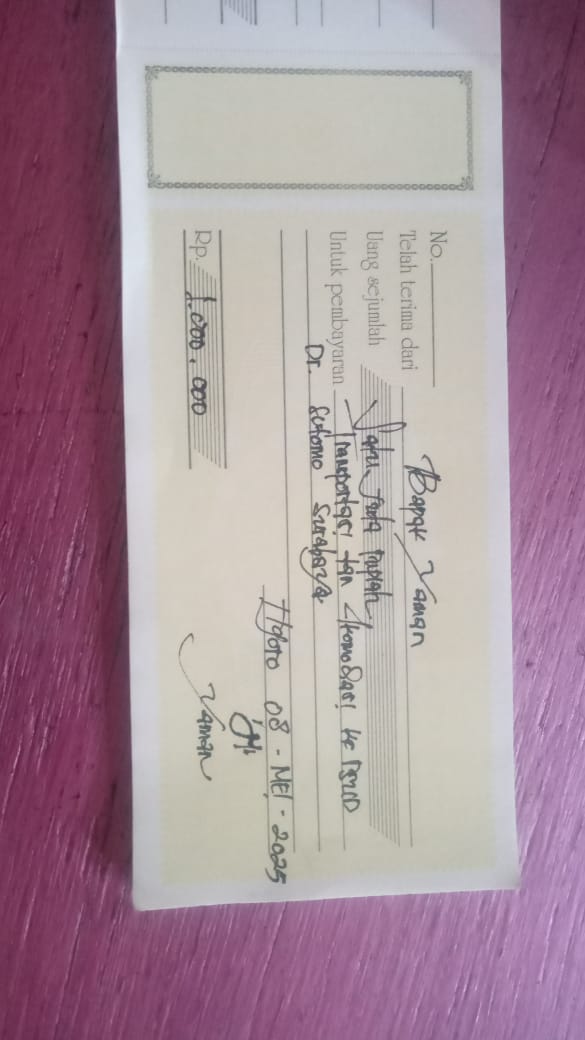 No.
Telah terima dari Bapak Yaman
Uang sejumlah Satu Juta Rupiah
Untuk pembayaran Transportasi dan Akomodasi ke RSUD
Dr. Sutomo Surabaya
08 - MEI - 2025
Rp. 1.000.000
Yaman